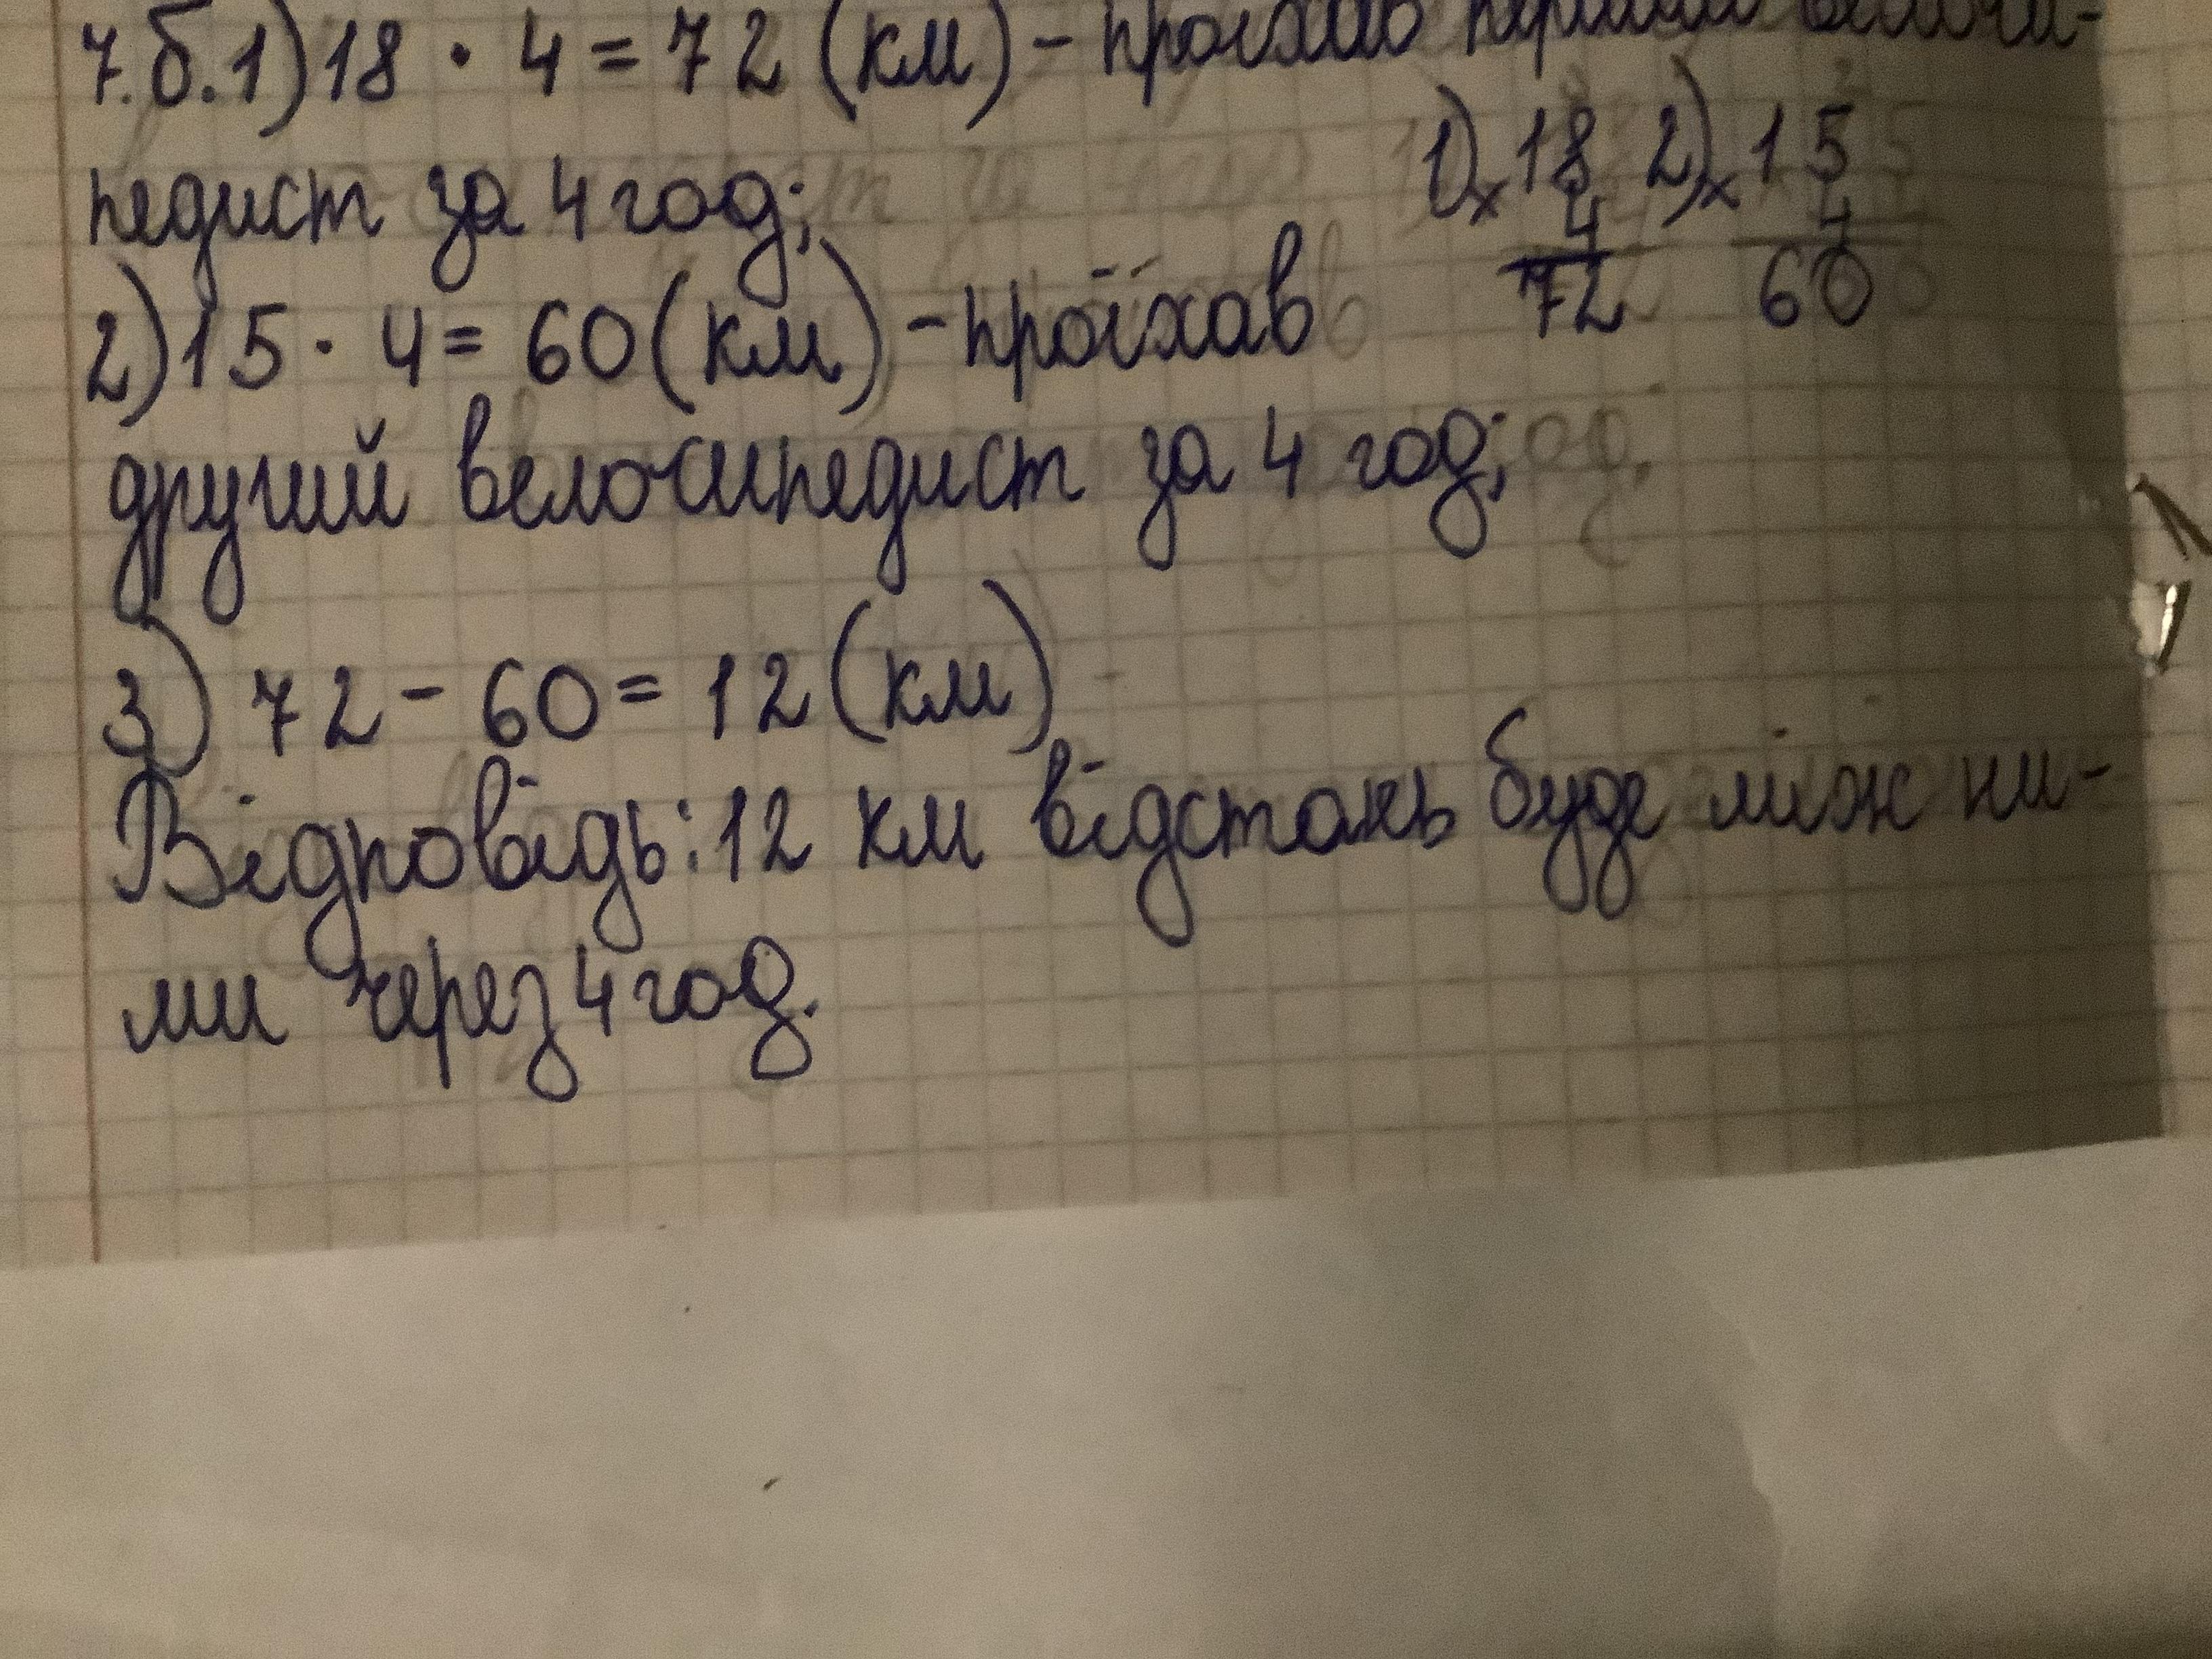 7.б.1) 18 · 4 = 72 (км) - проїхав перший велоси-
педист за 4 год;
1) × 18 2) × 15
4 4
72 60
2) 15 · 4 = 60 (км) - проїхав
другий велосипедист за 4 год;
3) 72 - 60 = 12 (км)
Відповідь: 12 км відстань буде між ни-
ми через 4 год.